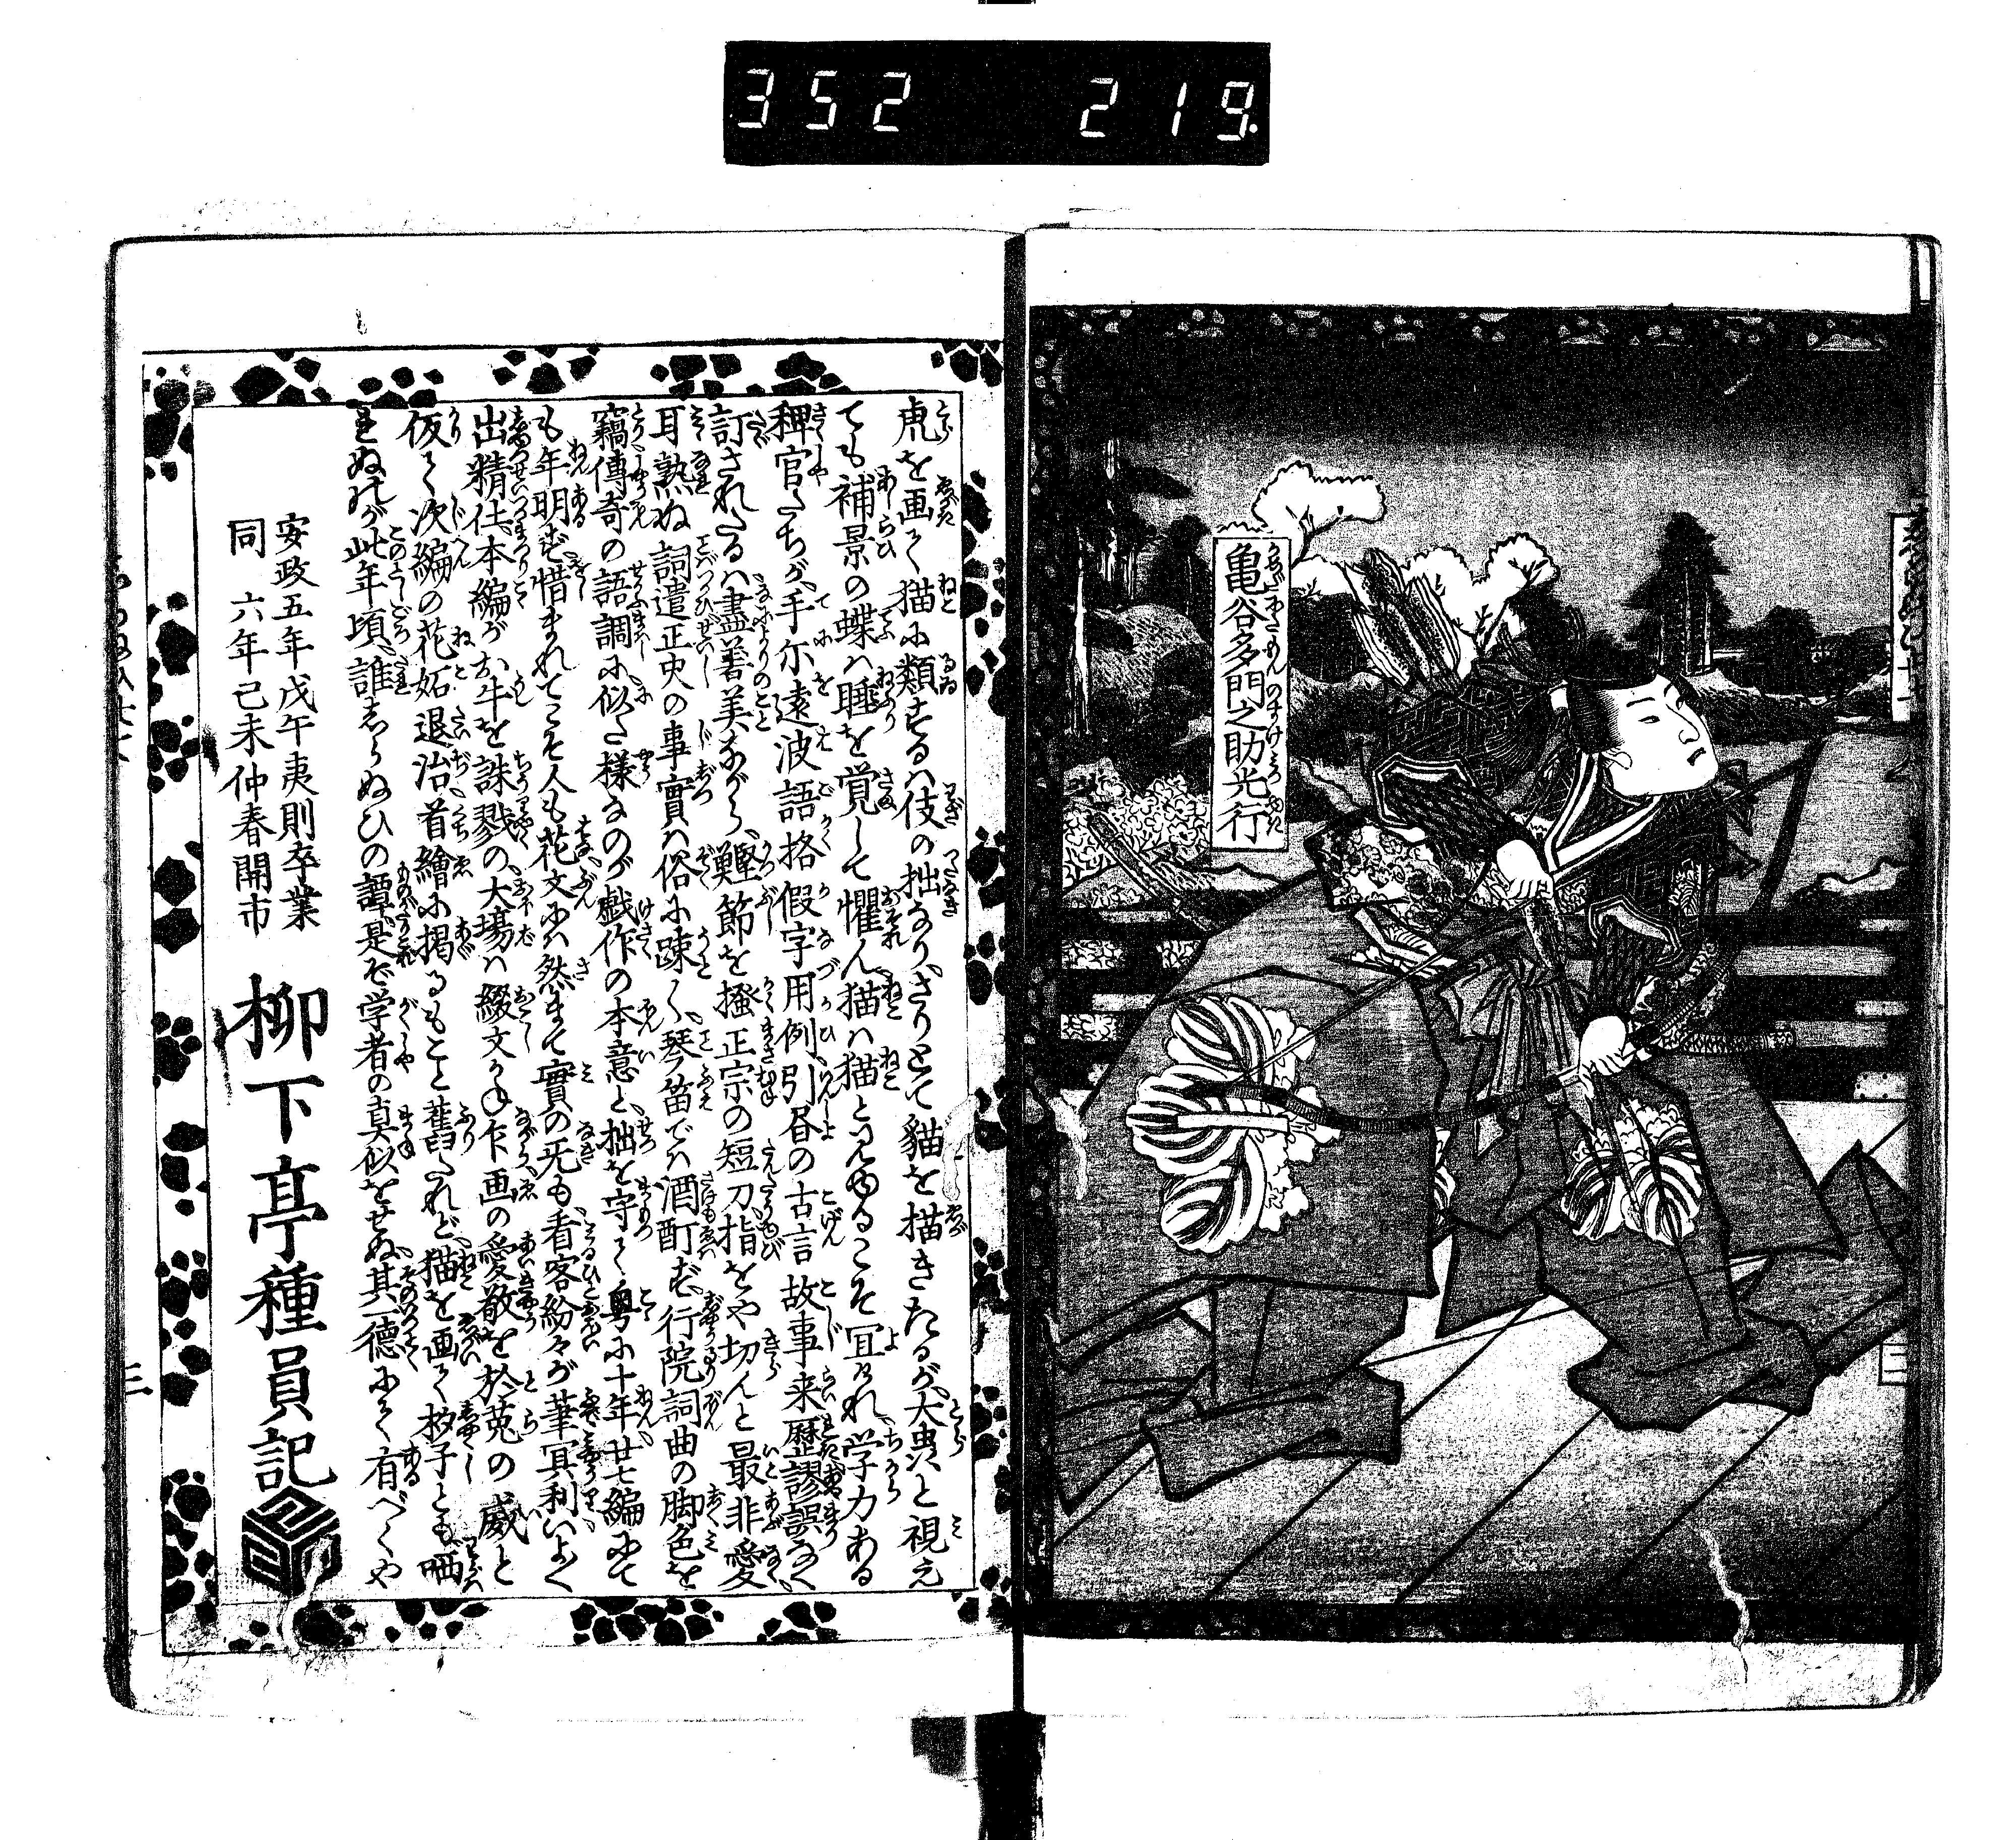 352 219
亀谷多門之助光行
虎を画て猫に類するは伎の拙なり。さりとて貓を描きたるが、大虫と視え
ても補景の蝶は睡を覚して懼ん。猫は猫と見ゆるこそ宜けれ。学力ある
稗官たちが、手尓遠波語格假字用例、引昼の古言故事来歴謬誤なく
訂されたるは盡善美ながら、鰹節を掻正宗の短刀、指をや切んと最非愛
耳熟ぬ詞遣正史の事實は俗に踈く、琴笛では酒酊ず、行院詞曲の脚色を
竊、傳奇の語調に似た様なのが戯作の本意と、拙を守て粤に十年廿七編にて
も年明ず惜まれてこそ人も花、文には然まで實の旡も、看客紛々が筆冥利、いよ〳〵
出精仕、本編がお牛を誅戮の、大場は綴文より乍画の愛敬を於菟の威と
仮て次編の花妬退治、首繪に掲るもこと舊たれど、猫を画て杓子とも哂
れぬのが此年頃、誰しらぬひの譚、是ぞ学者の真似をせぬ、其一徳にて有べくや
安政五年戊午夷則卒業
同 六年己未仲春開市
柳下亭種員記
三